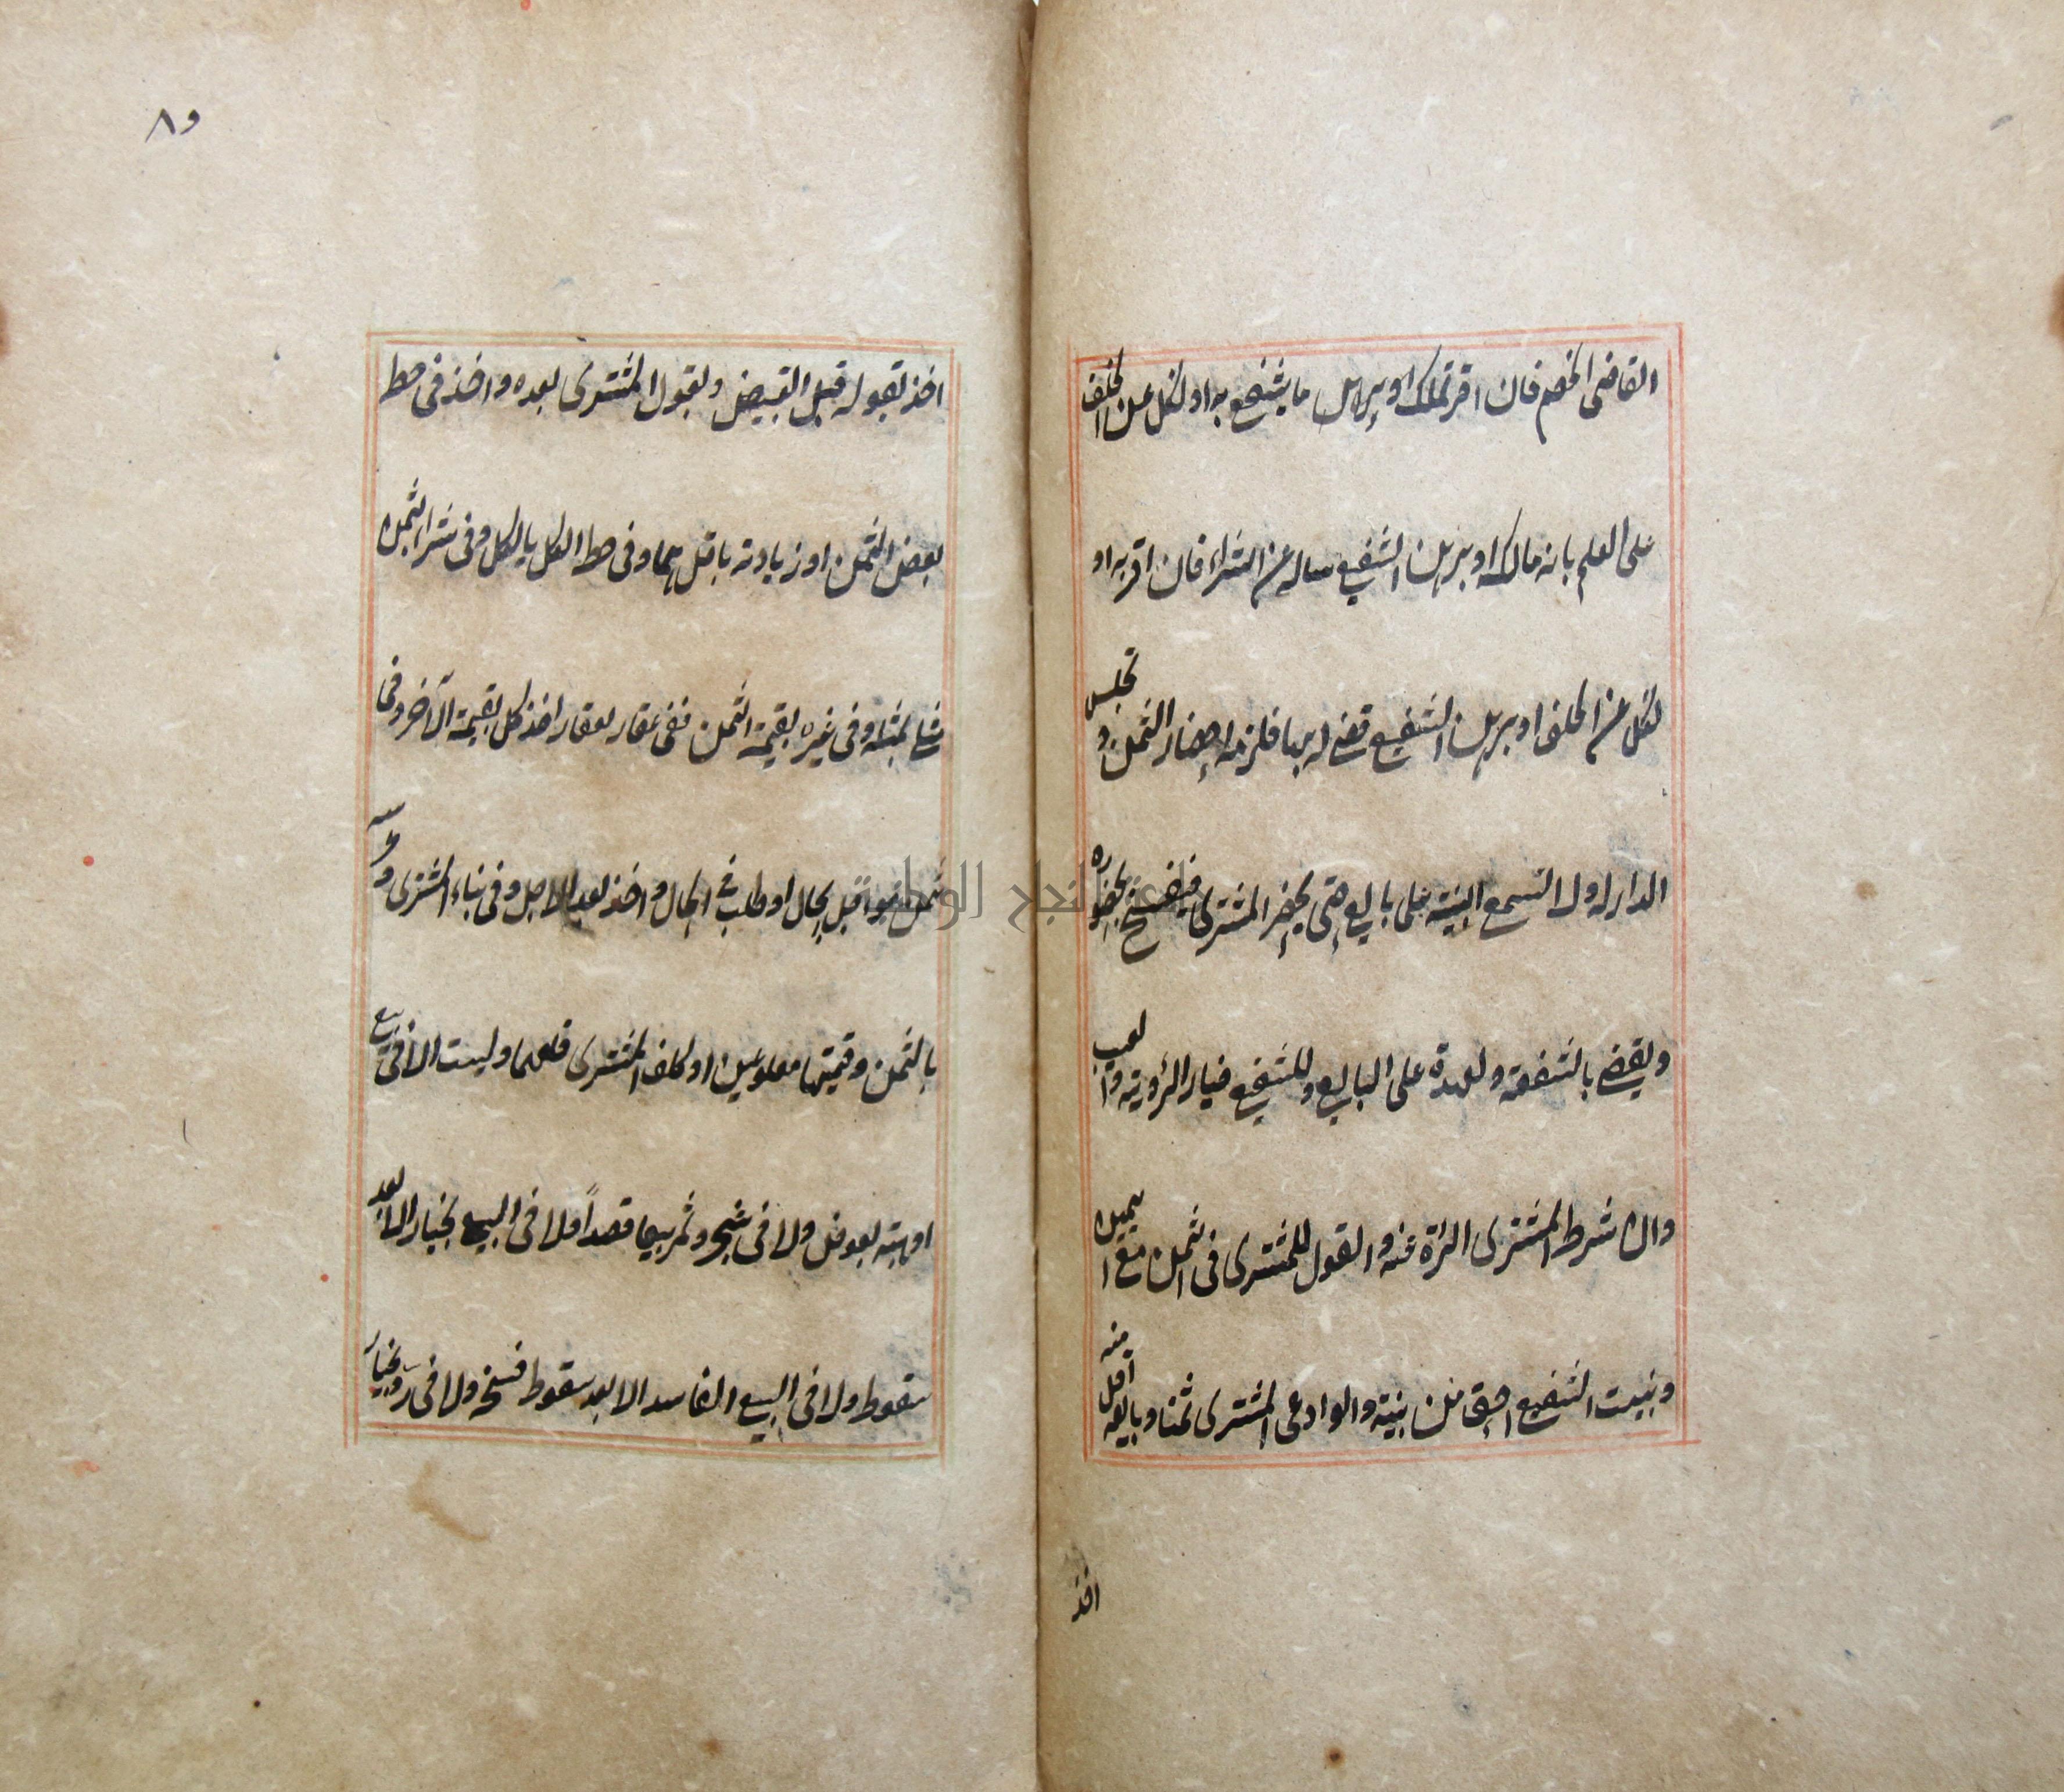 القاضى الخصم فان اقر تملك او برهن ما يشفع به او نكل عن الحلف
على العلم بانه مالك او برهن الشفيع ساله عن الشراء فان اقر به او
نكل عن الحلف او برهن الشفيع قضى له بها فلزمه احضار الثمن و تجلس
الدار له ول التسمع البينة على بايع حتى يحضر المشترى فيفسخ بحضوره
ويقضى بالشفعة ولعهدة على البايع وللشفيع خيار الرؤية والعيب
وان شرط المشترى البرة عنه والقول للمشترى فى الثمن مع اليمين
وبنيت الشفيع احق من بنيته والو ادعى المشترى ثمنا وبايعه اقل منه
اخذ
٨٥
اخذ بقوله قبل القبيض وبقبول المشترى بعده واخذ فى حط
بعض الثمن او زيادته باقل هما وفى حط الكل بالكل وفى شراء بثمن
مثلى بمثله وفى غيره بقيمة الثمن ففى عقار بعقار اخذ كل بقيمة الآخر وفى
ثمن مؤاقبل بحال او طلب فى الحال واخذ بعد الاجل وفى بناء المشترى و
بالثمن وقيمتها مقلوعين او كلف المشترى قلعهما وليست الا فى بيع
او هبته بعوض ولا فى شجر وثمر بيعا قصداً ولا فى البيع بخيار الا بعد
سقوط ولا فى البيع الفاسد الا بعد سقوط فسخه ولا فى رد بخيار